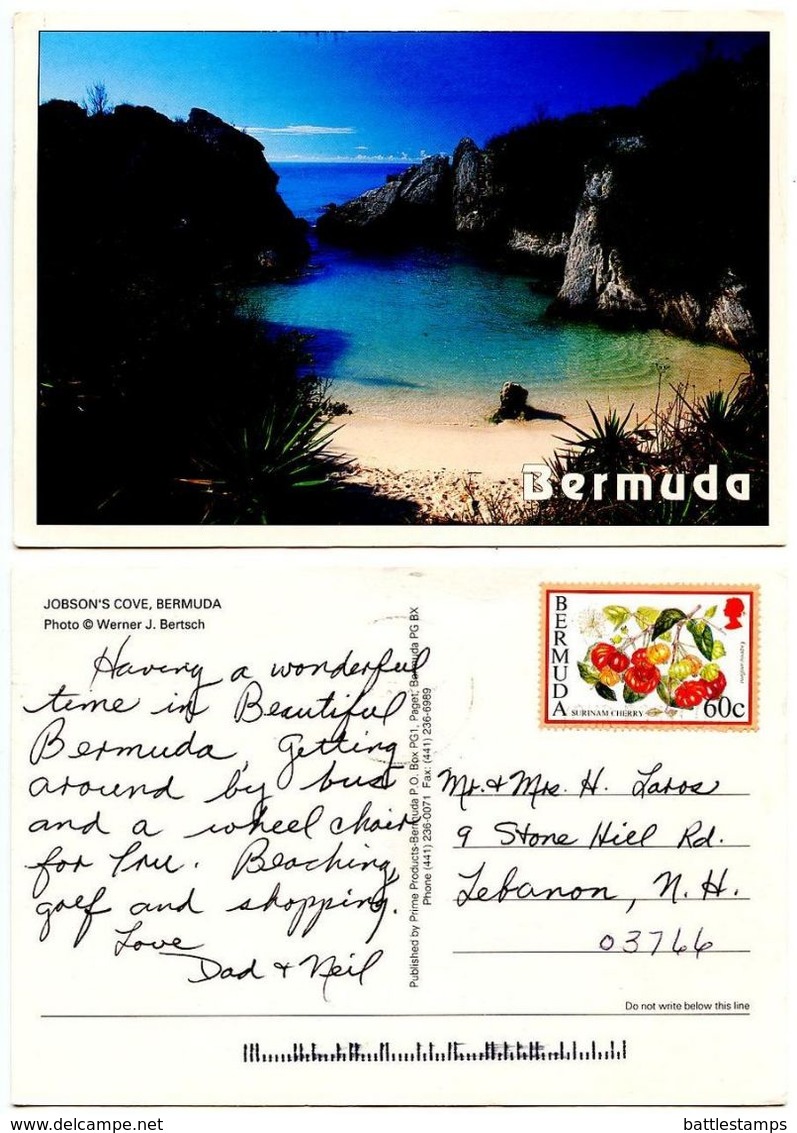 Bermuda
JOBSON'S COVE, BERMUDA
Photo © Werner J. Bertsch
Having a wonderful
time in Beautiful
Bermuda, getting
around by bus
and a wheel chair
for Pru. Beaching,
golf and shopping.
Love
Dad + Neil
Published by Prime Products-Bermuda P.O. Box PG1, Paget, Bermuda PG BX
Phone (441) 236-0071 Fax: (441) 236-6989
BERMUDA
SURINAM CHERRY
60c
Mr. + Mrs. H. Laros
9 Stone Hill Rd.
Lebanon, N.H.
03766
Do not write below this line
delcampe.net
battlestamps